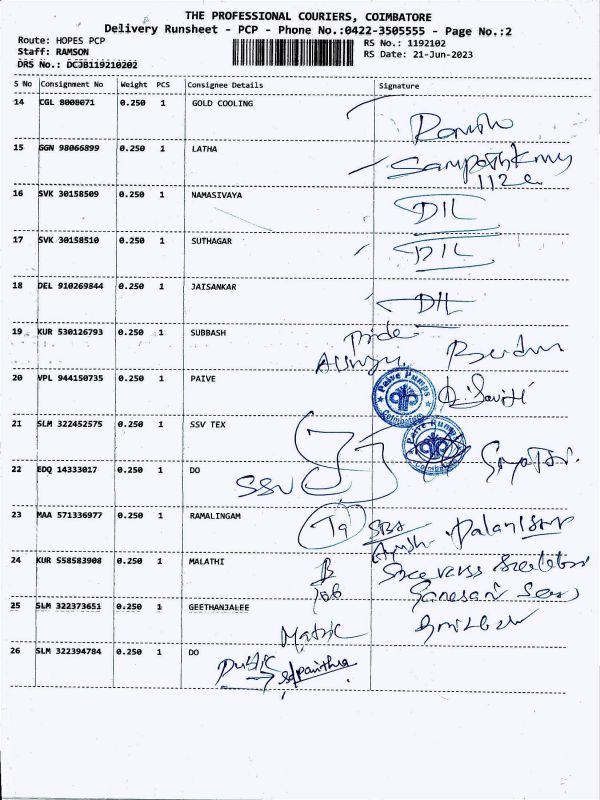 THE PROFESSIONAL COURIERS, COIMBATORE
Delivery Runsheet - PCP - Phone No.:0422-3505555 - Page No.:2
Route: HOPES PCP
Staff: RAMSON
DRS No.: DCJB119210202
RS No.: 1192102
RS Date: 21-Jun-2023
S No Consignment No Weight PCS Consignee Details Signature
14 CGL 8008071 0.250 1 GOLD COOLING
15 GGN 98066899 0.250 1 LATHA
16 SVK 30158509 0.250 1 NAMASIVAYA DIL
17 SVK 30158510 0.250 1 SUTHAGAR DIL
18 DEL 910269844 0.250 1 JAISANKAR DIL
19 KUR 530126793 0.250 1 SUBBASH
20 VPL 944150735 0.250 1 PAIVE Paive Pumps Coimbatore
21 SLM 322452575 0.250 1 SSV TEX Paive Pumps Coimbatore
22 EDQ 14333017 0.250 1 DO SSV
23 MAA 571336977 0.250 1 RAMALINGAM
24 KUR 558583908 0.250 1 MALATHI
25 SLM 322373651 0.250 1 GEETHANJALEE
26 SLM 322394784 0.250 1 DO